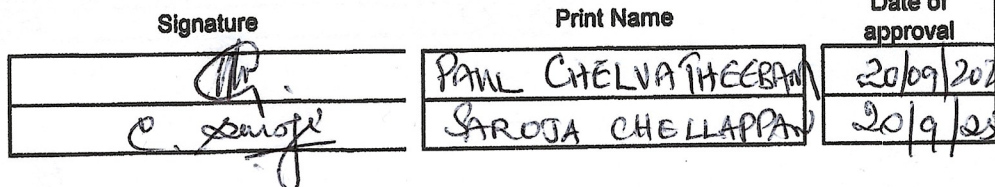 Signature Print Name Date of approval
PAUL CHELVATHEEBAN 20/09/202
C. Saroja SAROJA CHELLAPPAN 20/9/25